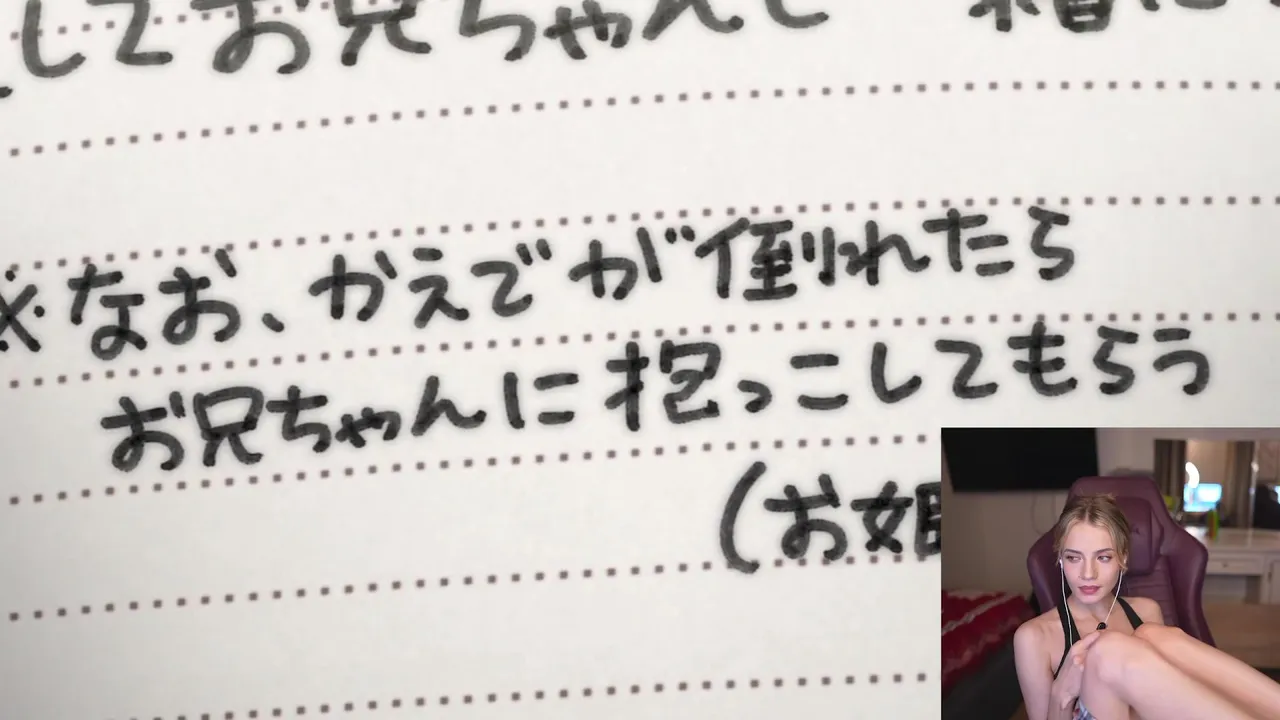 してお兄ちゃんと
※なお、かえでが倒れたら
お兄ちゃんに抱っこしてもらう
(お姫